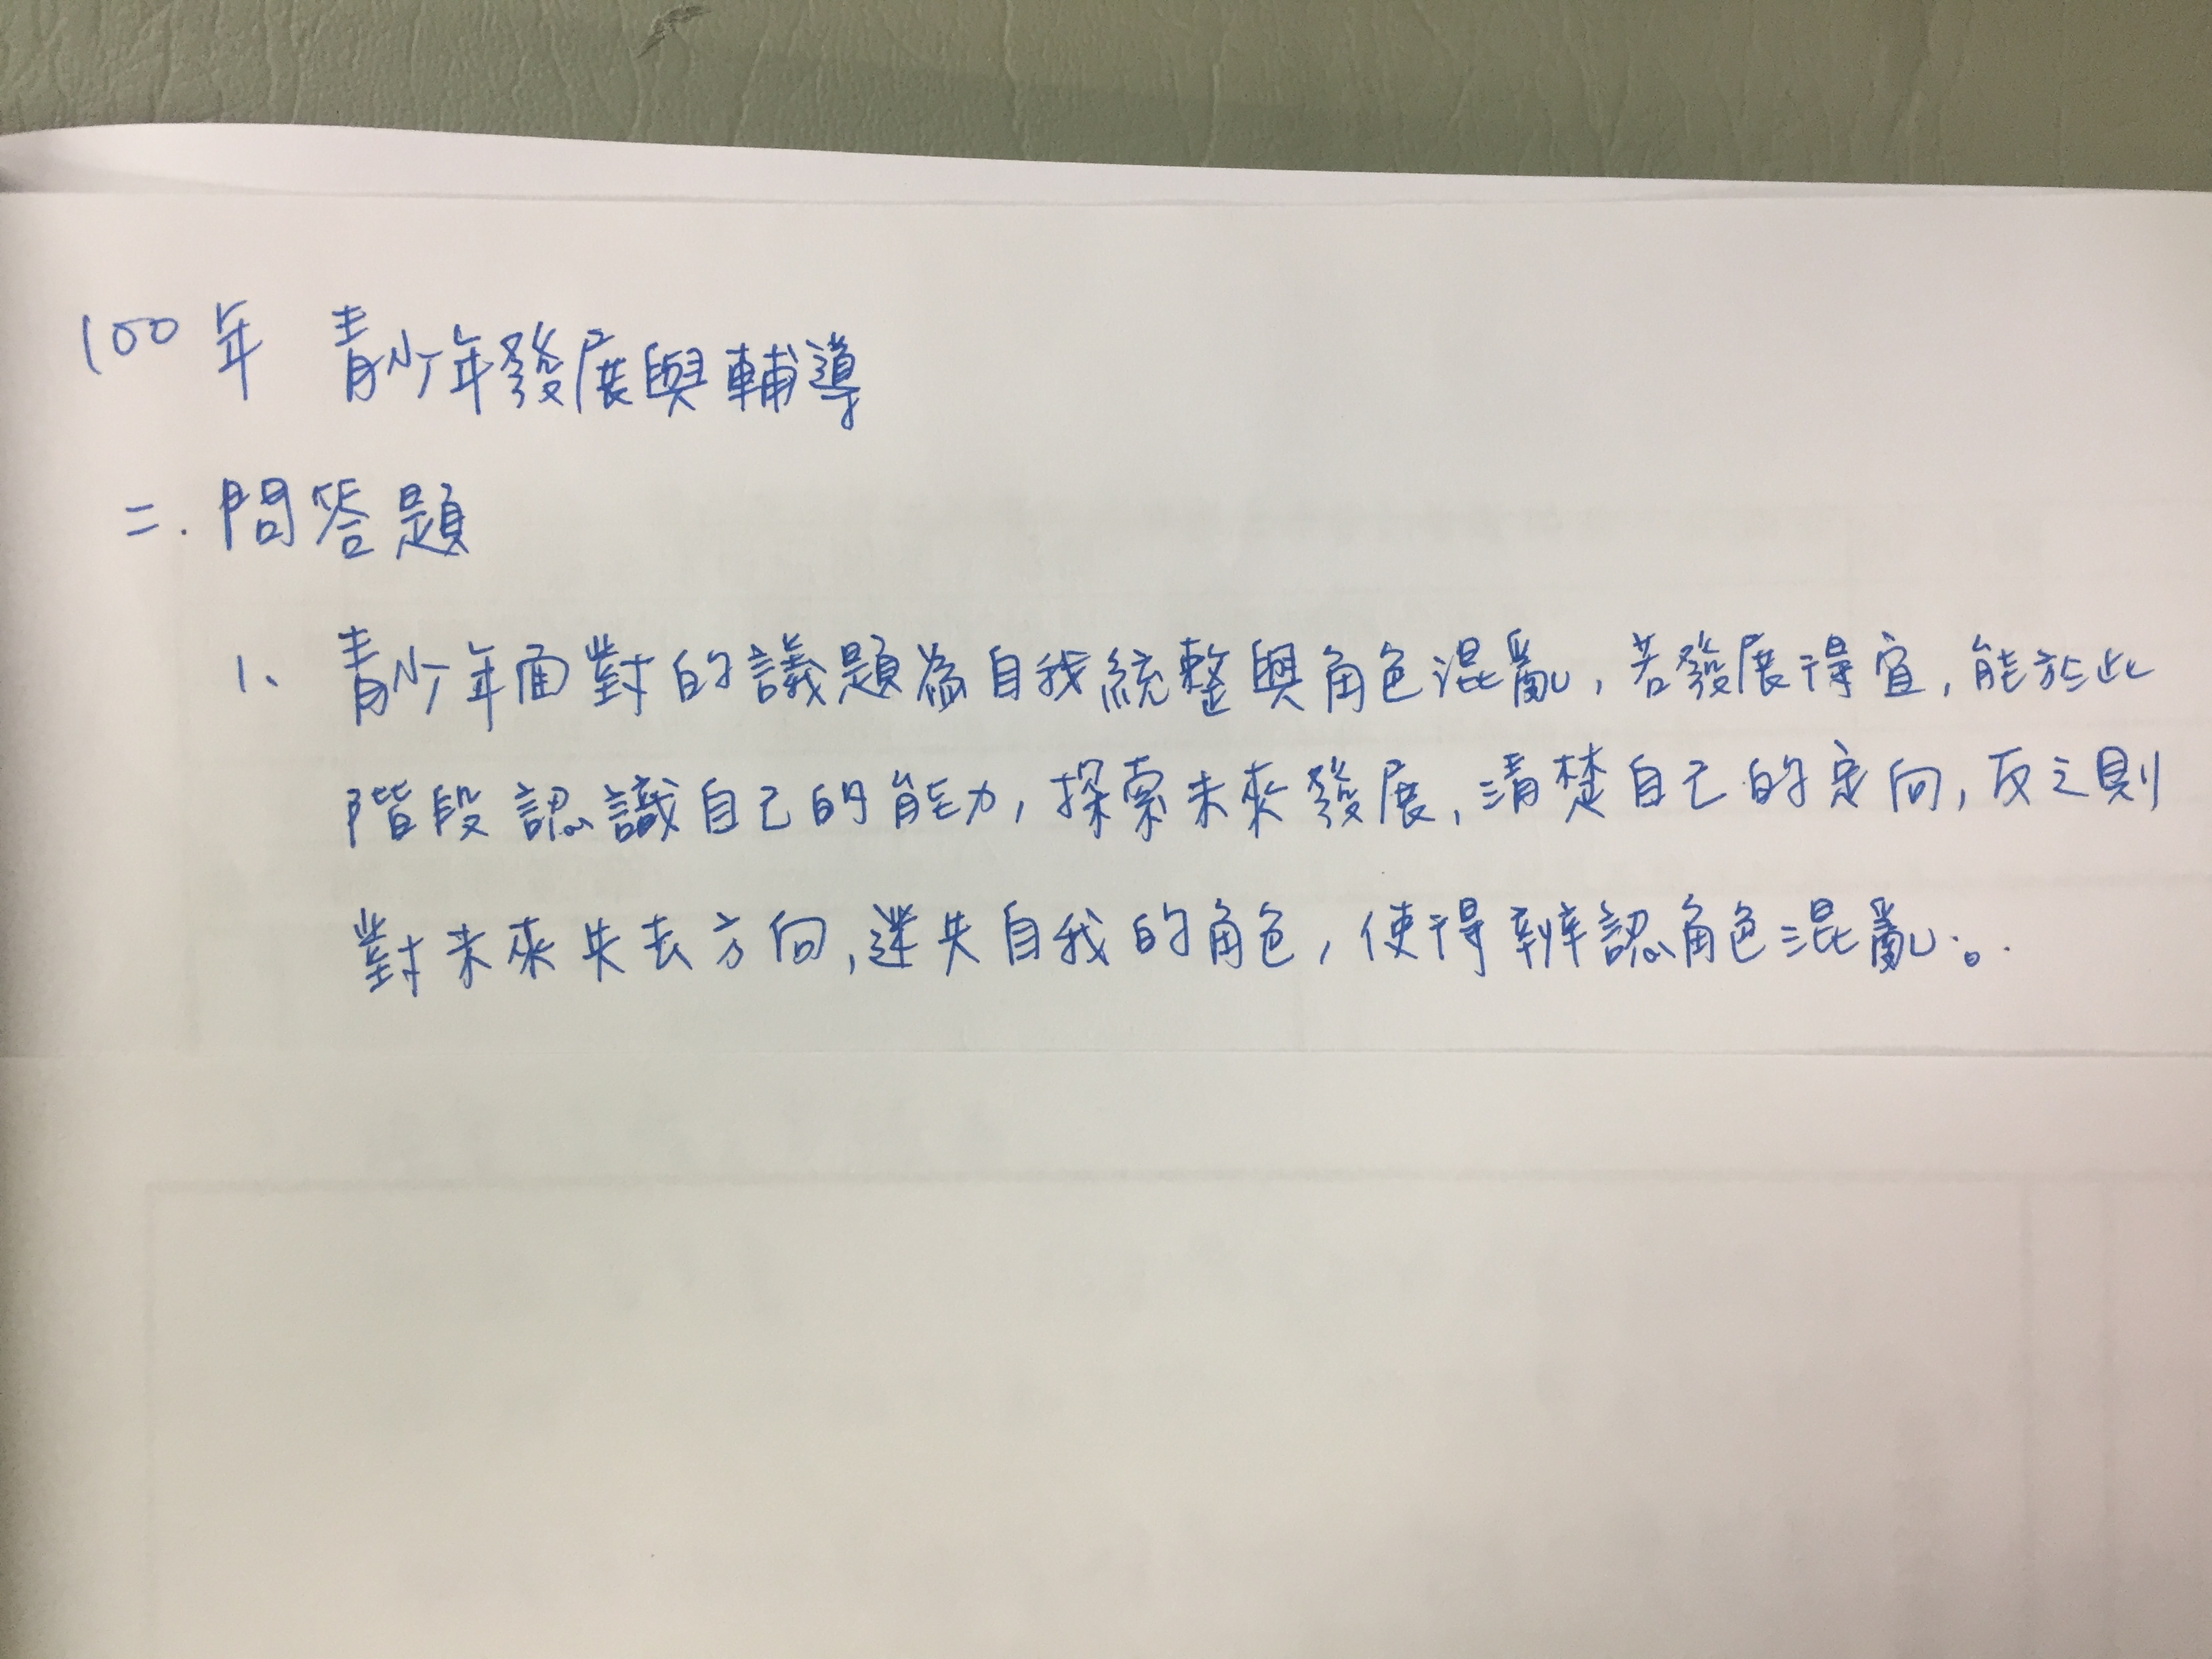 100年 青少年發展與輔導
二.問答題
1、青少年面對的議題為自我統整與角色混亂,若發展得宜,能於此
階段認識自己的能力,探索未來發展,清楚自己的定向,反之則
對未來失去方向,迷失自我的角色,使得辨認角色混亂。